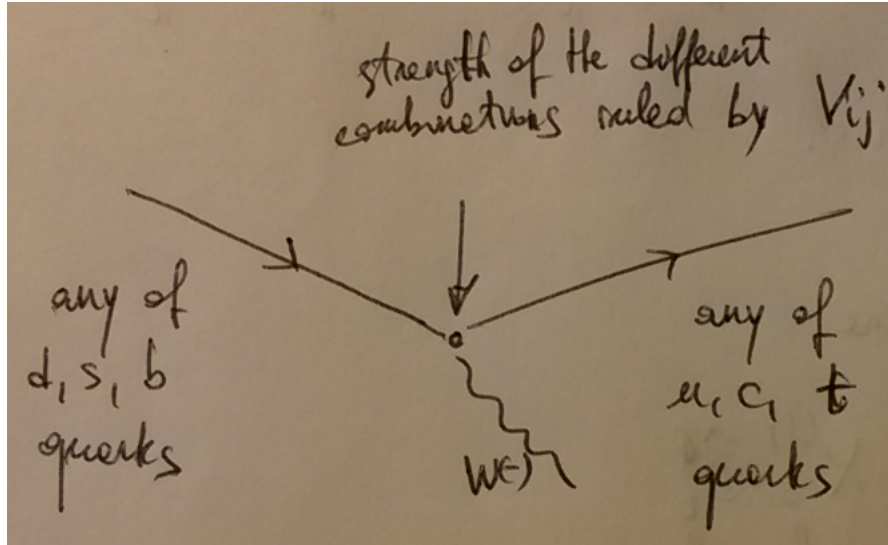 strength of the different
combinations ruled by Vij
any of
d, s, b
quarks
any of
u, c, t
quarks
W(-)